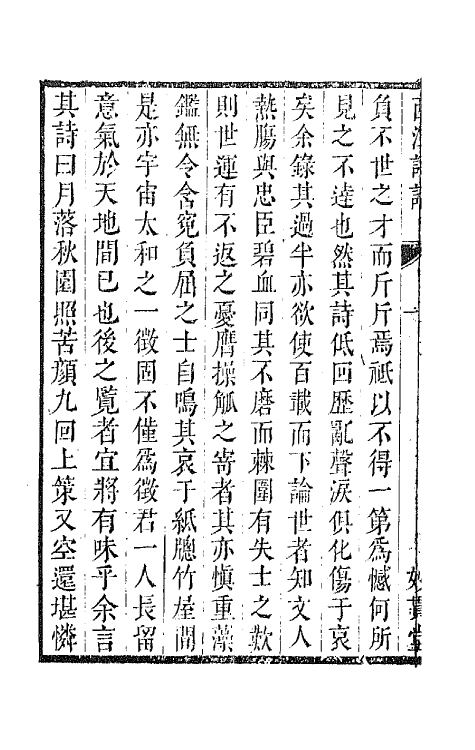 負不世之才而斤斤焉祗以不得一第爲憾何所
見之不逹也然其詩低回歴亂聲淚俱化傷于哀
矣余錄其過半亦欲使百載而下論世者知文人
熱腸與忠臣碧血同其不磨而棘圍有失士之歎
則世運有不返之憂膺操觚之寄者其亦愼重藻
鑑無令含寃負屈之士自鳴其哀于紙牕竹屋間
是亦宇宙太和之一徵固不僅爲徵君一人長留
意氣於天地間已也後之覧者宜將有味乎余言
其詩曰月落秋園照苦顔九回上策又空還堪憐